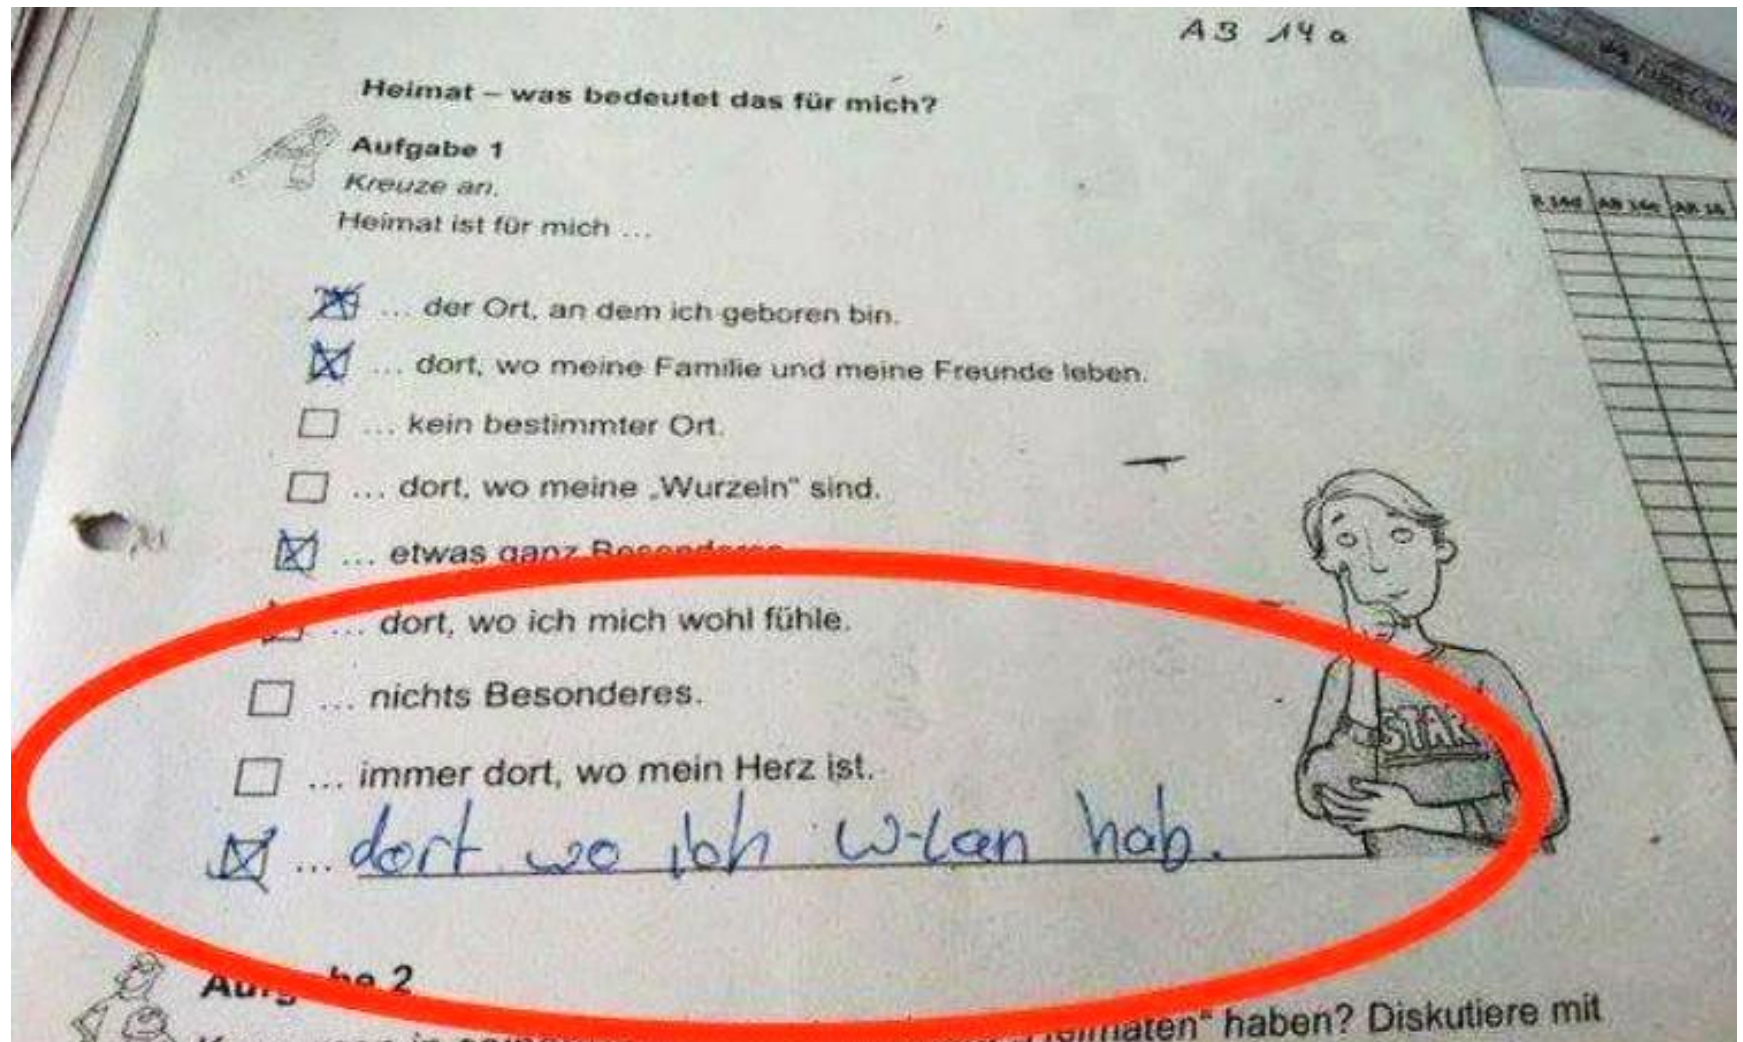 AB 14a
Heimat – was bedeutet das für mich?
Aufgabe 1
Kreuze an.
Heimat ist für mich ...
... der Ort, an dem ich geboren bin.
... dort, wo meine Familie und meine Freunde leben.
... kein bestimmter Ort.
... dort, wo meine „Wurzeln“ sind.
... etwas ganz Besonderes.
... dort, wo ich mich wohl fühle.
... nichts Besonderes.
... immer dort, wo mein Herz ist.
... dort wo ich W-Lan hab.
Aufgabe 2
haben? Diskutiere mit
STAR
AB 14d AB 14e AB 14